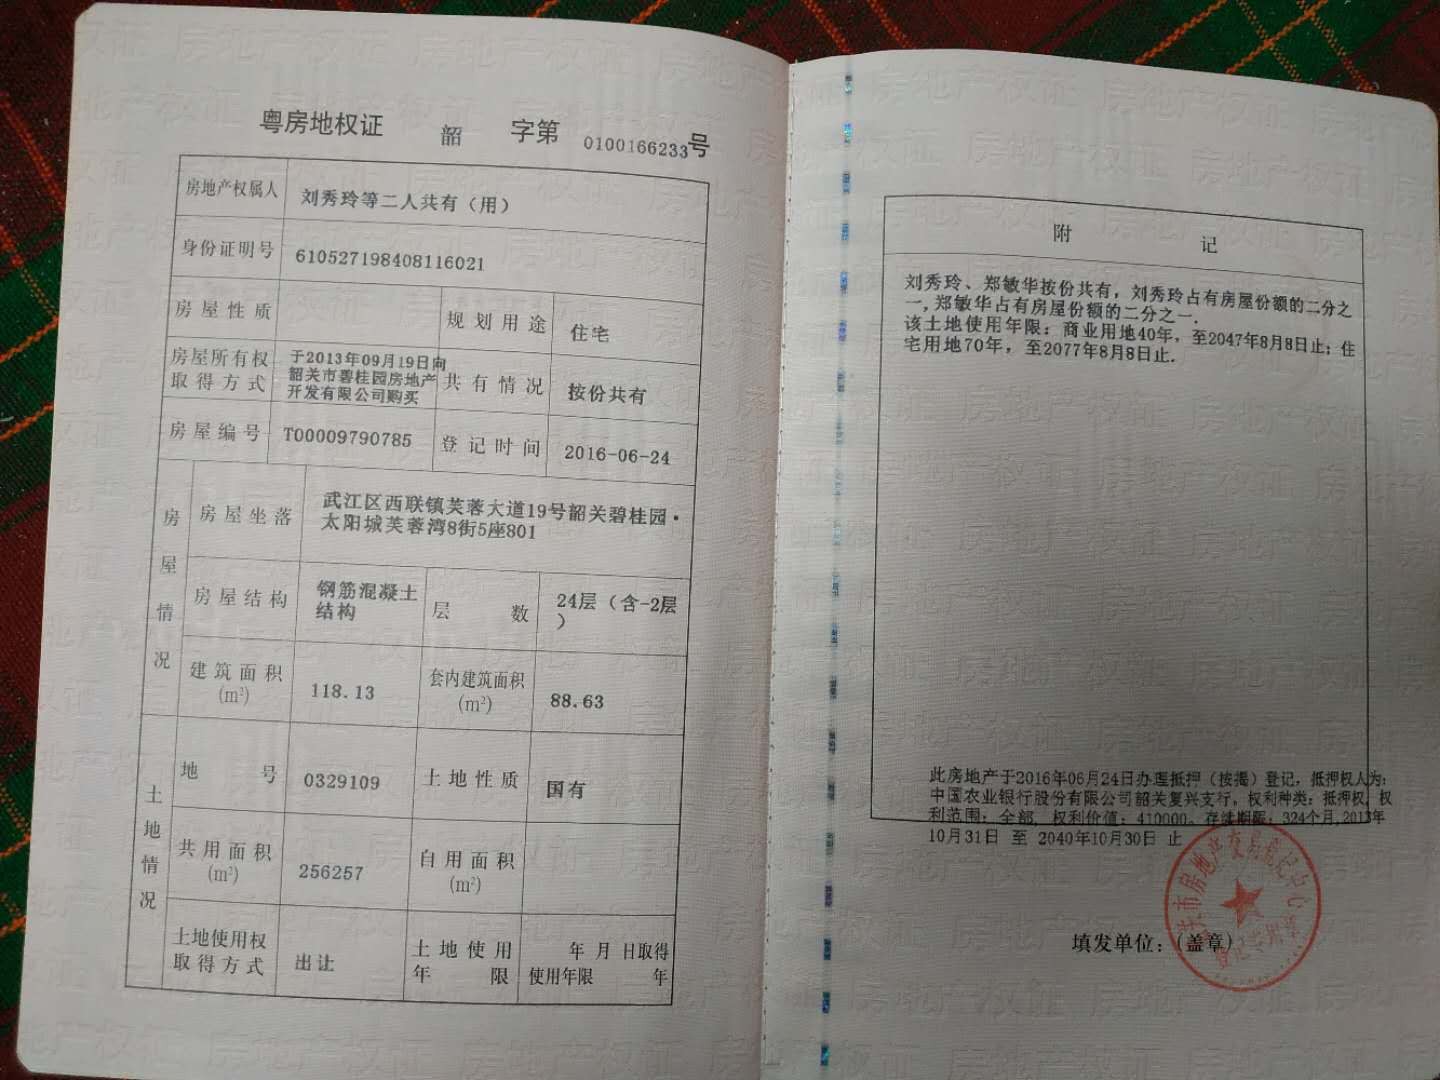 粤房地权证 韶 字第 0100166233号
房地产权属人 刘秀玲等二人共有（用）
身份证明号 610527198408116021
房屋性质 规划用途 住宅
房屋所有权取得方式 于2013年09月19日向韶关市碧桂园房地产开发有限公司购买 共有情况 按份共有
房屋编号 T00009790785 登记时间 2016-06-24
房屋情况
房屋坐落 武江区西联镇芙蓉大道19号韶关碧桂园·
太阳城芙蓉湾8街5座801
房屋结构 钢筋混凝土结构 层数 24层（含-2层）
建筑面积(m²) 118.13 套内建筑面积(m²) 88.63
土地情况
地号 0329109 土地性质 国有
共用面积(m²) 256257 自用面积(m²)
土地使用权取得方式 出让 土地使用年限 年 月 日取得
使用年限 年
附 记
刘秀玲、郑敏华按份共有，刘秀玲占有房屋份额的二分之
一,郑敏华占有房屋份额的二分之一.
该土地使用年限：商业用地40年，至2047年8月8日止；住
宅用地70年，至2077年8月8日止.
此房地产于2016年06月24日办理抵押（按揭）登记，抵押权人为:
中国农业银行股份有限公司韶关复兴支行，权利种类：抵押权，权
利范围：全部，权利价值：410000。存续期限：324个月,2013年
10月31日 至 2040年10月30日 止
填发单位：（盖章）
关市房地产交易登记中心
登记专用章